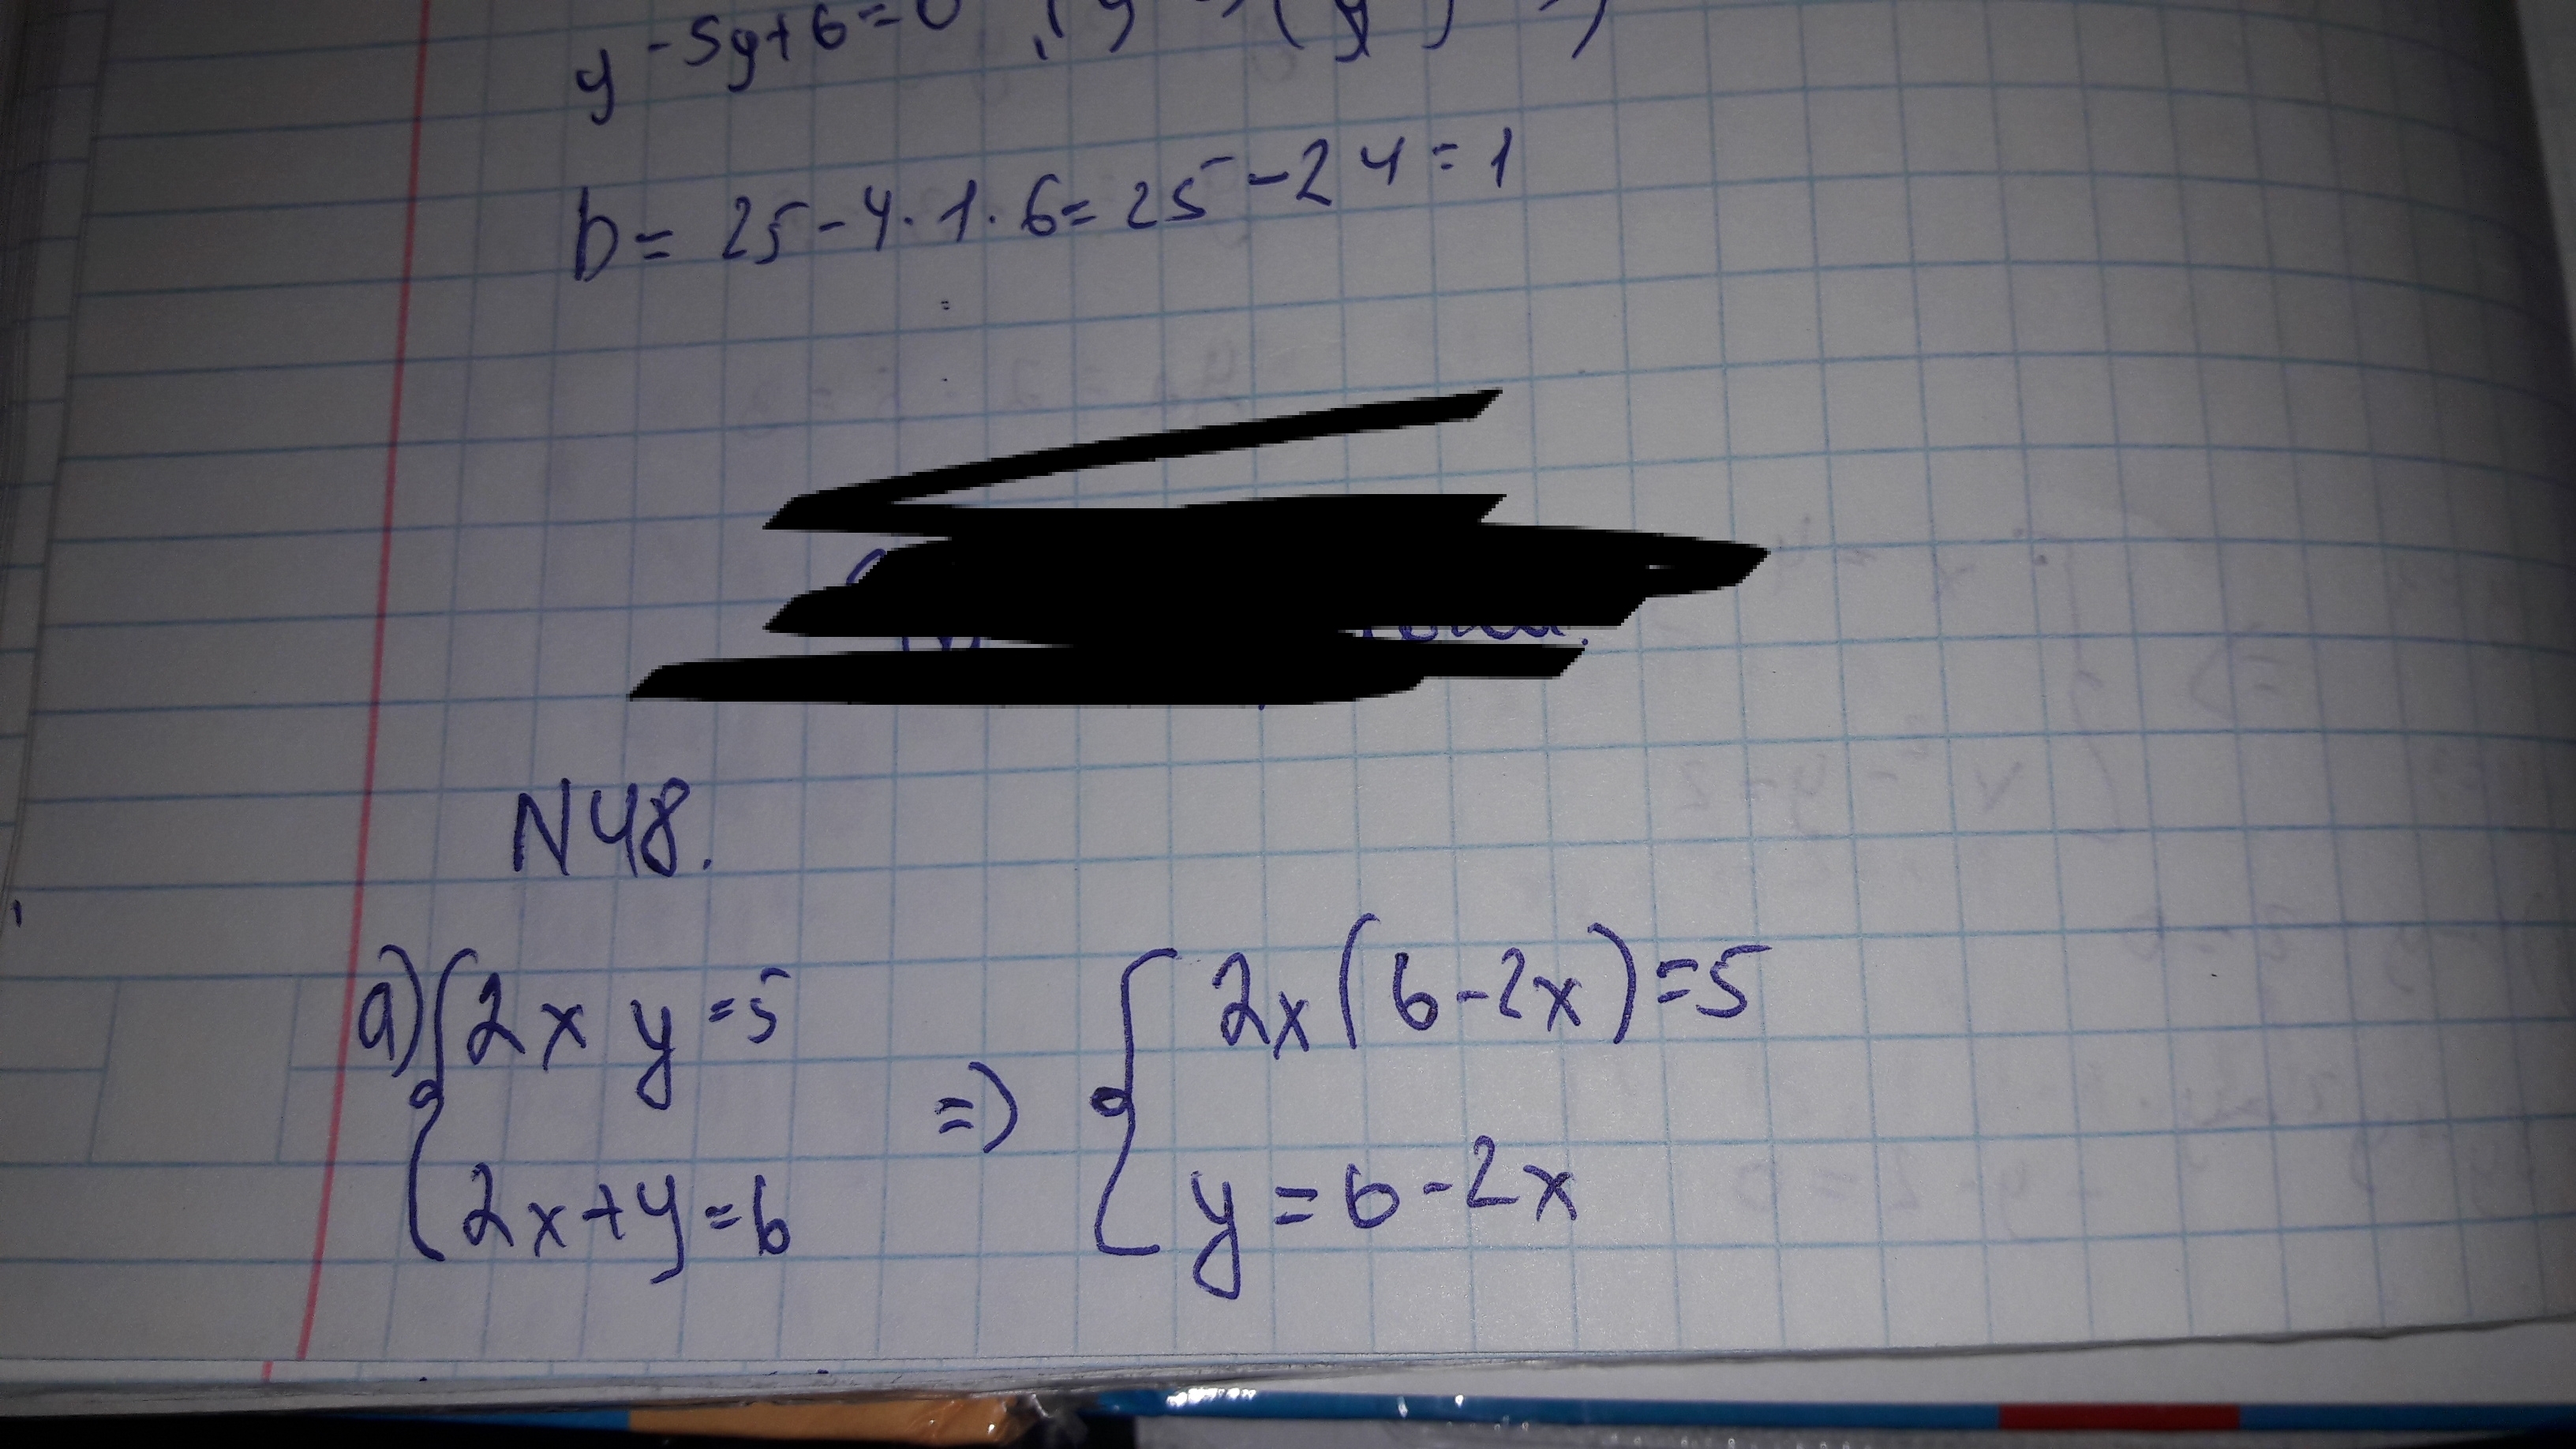 y -5y+6=0
D= 25-4·1·6= 25-24=1
N48.
a) { 2xy=5 => { 2x(6-2x)=5
{ 2x+y=6 { y=6-2x